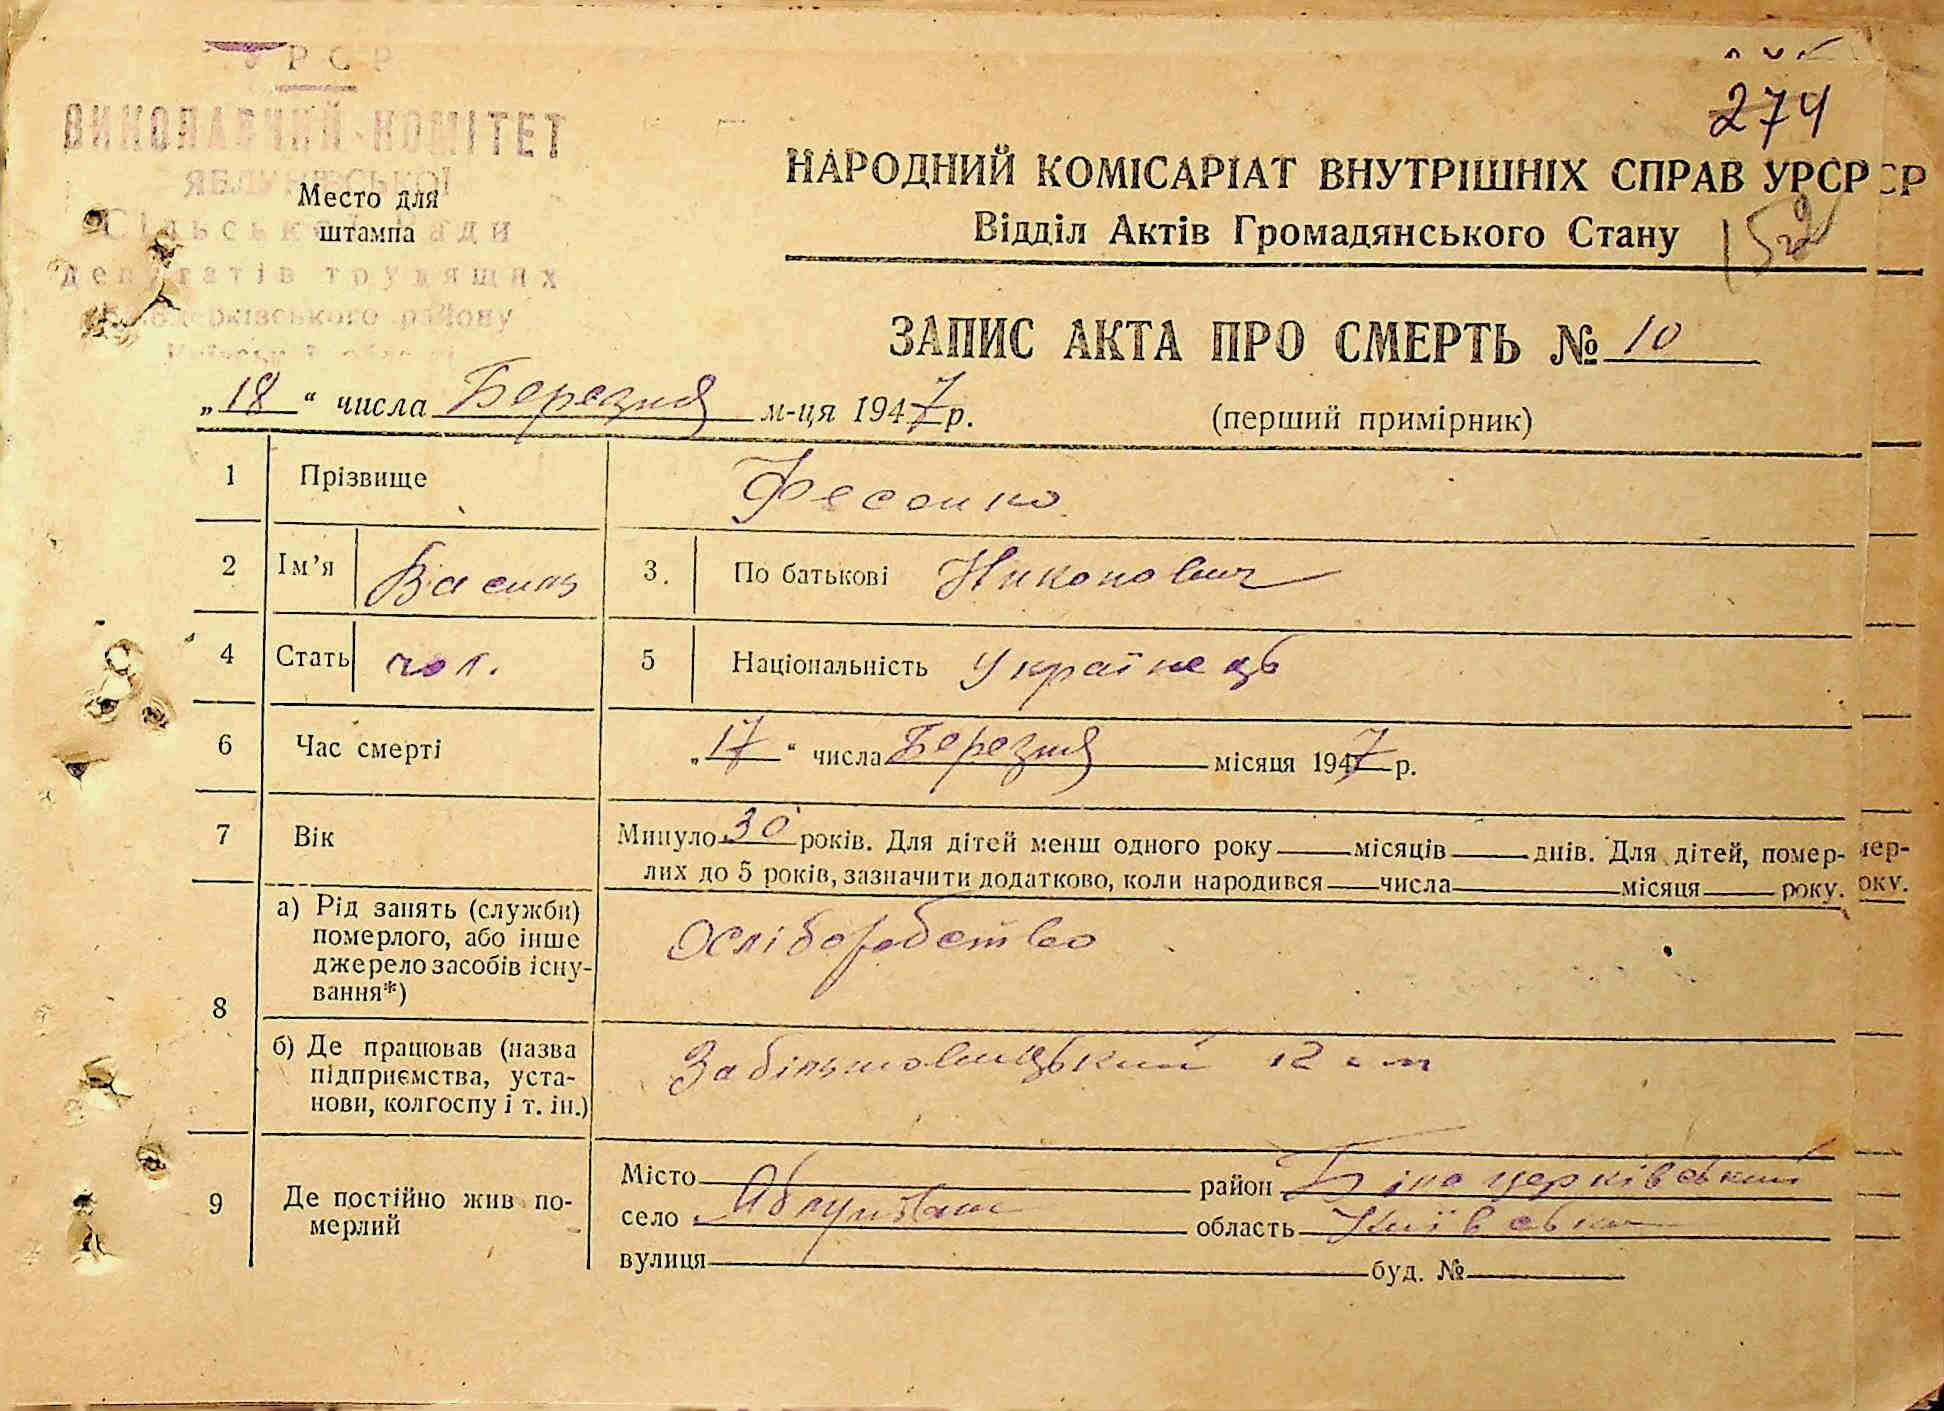 РСР
ВИКОНАВЧИЙ КОМІТЕТ
ЯБЛУНІВСЬКОЇ
Сільської Ради
депутатів трудящих
Білоцерківського району
Місто для
штампа
274
152
НАРОДНИЙ КОМІСАРІАТ ВНУТРІШНІХ СПРАВ УРСР
Відділ Актів Громадянського Стану
ЗАПИС АКТА ПРО СМЕРТЬ № 10
„18“ числа Березня м-ця 1947 р.
(перший примірник)
1 Прізвище Фесенко
2 Ім’я Василь 3. По батькові Никонович
4 Стать чол. 5 Національність Українець
6 Час смерті „17“ числа Березня місяця 1947 р.
7 Вік Минуло 30 років. Для дітей менш одного року місяців днів. Для дітей, помер-
лих до 5 років, зазначити додатково, коли народився числа місяця року.
8 а) Рід занять (служби)
померлого, або інше
джерело засобів існу-
вання*)
б) Де працював (назва
підприємства, уста-
нови, колгоспу і т. ін.)
9 Де постійно жив по-
мерлий
Місто район Білоцерківський
село Яблунівка область Київська
вулиця буд. №